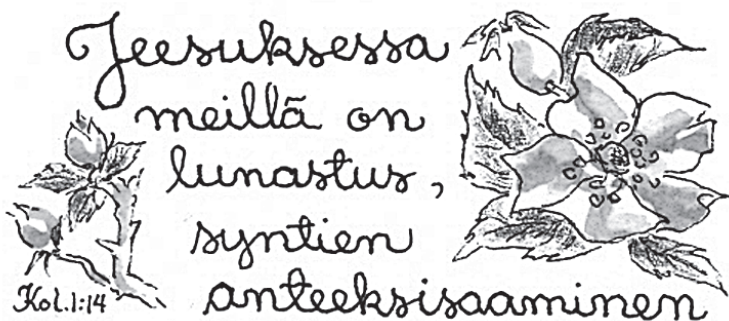 Jeesuksessa
meillä on
lunastus,
syntien
anteeksisaaminen
Kol.1:14